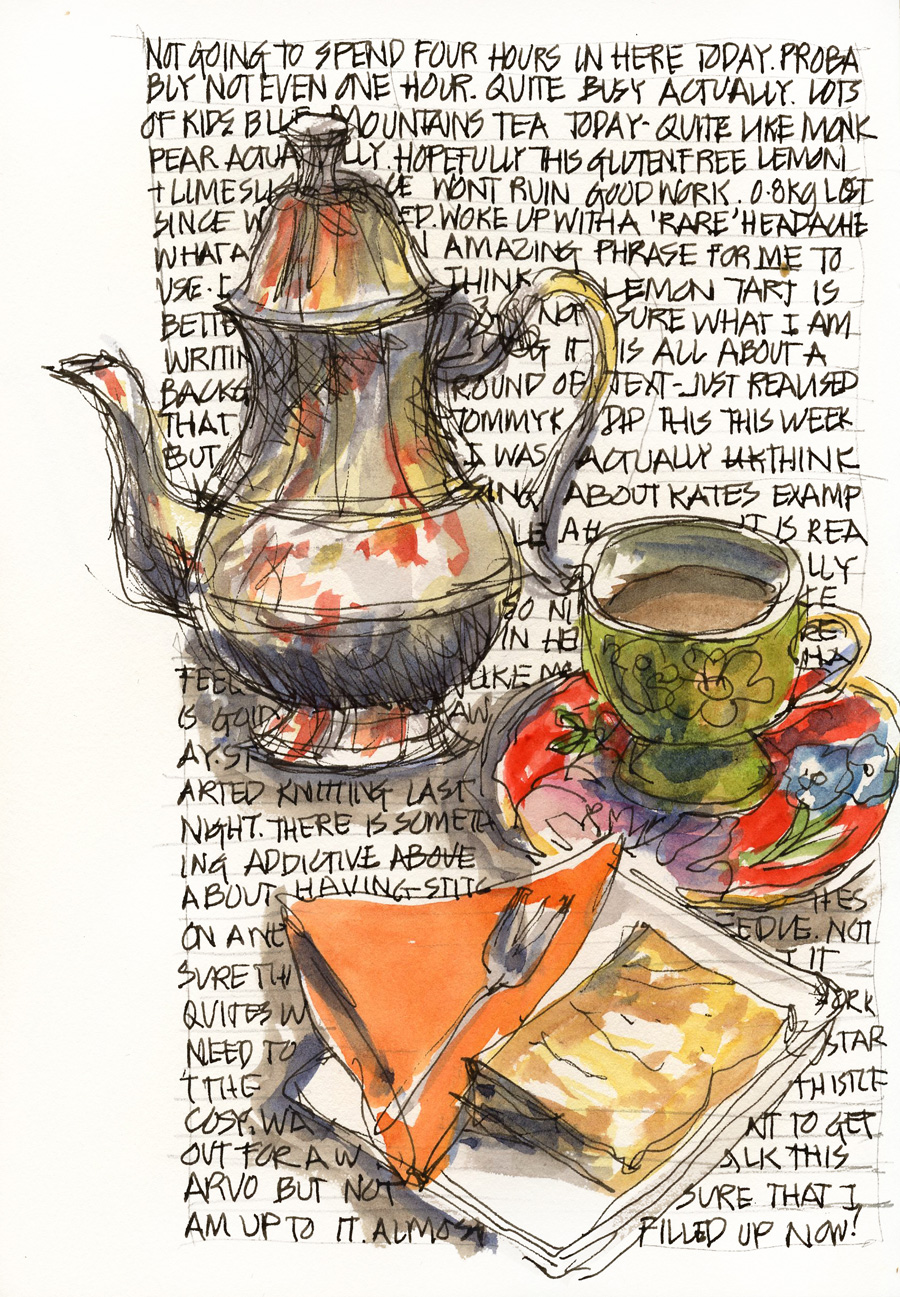 NOT GOING TO SPEND FOUR HOURS IN HERE TODAY. PROBA
BLY NOT EVEN ONE HOUR. QUITE BUSY ACTUALLY. LOTS
OF KIDS BLUE MOUNTAINS TEA TODAY - QUITE LIKE MONK
PEAR ACTUALLY. HOPEFULLY THIS GLUTEN.FREE LEMON
+ LIME WONT RUIN GOOD WORK. 0.8KG LOST
SINCE WOKE UP WITH A 'RARE' HEADACHE
WHAT A AMAZING PHRASE FOR ME TO
USE. THINK LEMON TART IS
BETTE NOT SURE WHAT I AM
WRITIN G IT IS ALL ABOUT A
BACKG ROUND OF TEXT - JUST REALISED
THAT TOMMY K DIP THIS THIS WEEK
BUT I WAS ACTUALLY THINK
ING ABOUT KATES EXAMP
LE AH IT IS REA
LLY
SO NI
IN HE RE
FEEL LIKE
IS GOLD AW
AY. ST
ARTED KNITTING LAST
NIGHT. THERE IS SOMETH
ING ADDICTIVE ABOVE
ABOUT HAVING STITC HES
ON A NE EEDLE. NOT
SURE THI T IT
QUITES W ORK
NEED TO STAR
T THE THISTLE
COSY. WA NT TO GET
OUT FOR A W ALK THIS
ARVO BUT NOT SURE THAT I
AM UP TO IT. ALMOST FILLED UP NOW!